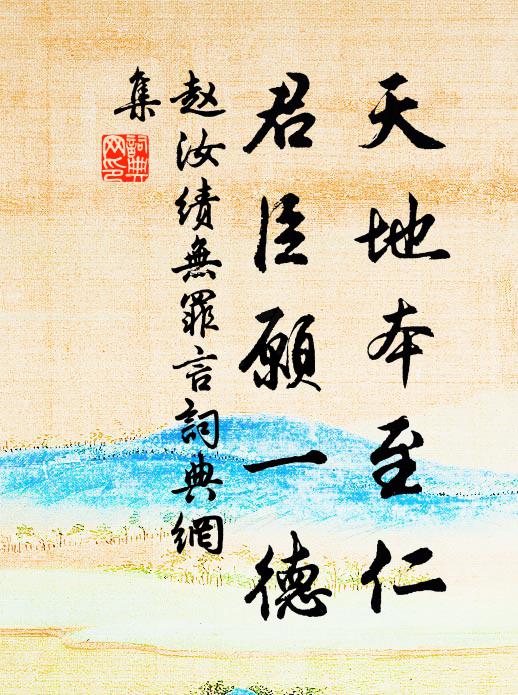 天地本至仁
君臣願一德
赵汝績無罪言詞典網
集
詞典
网印